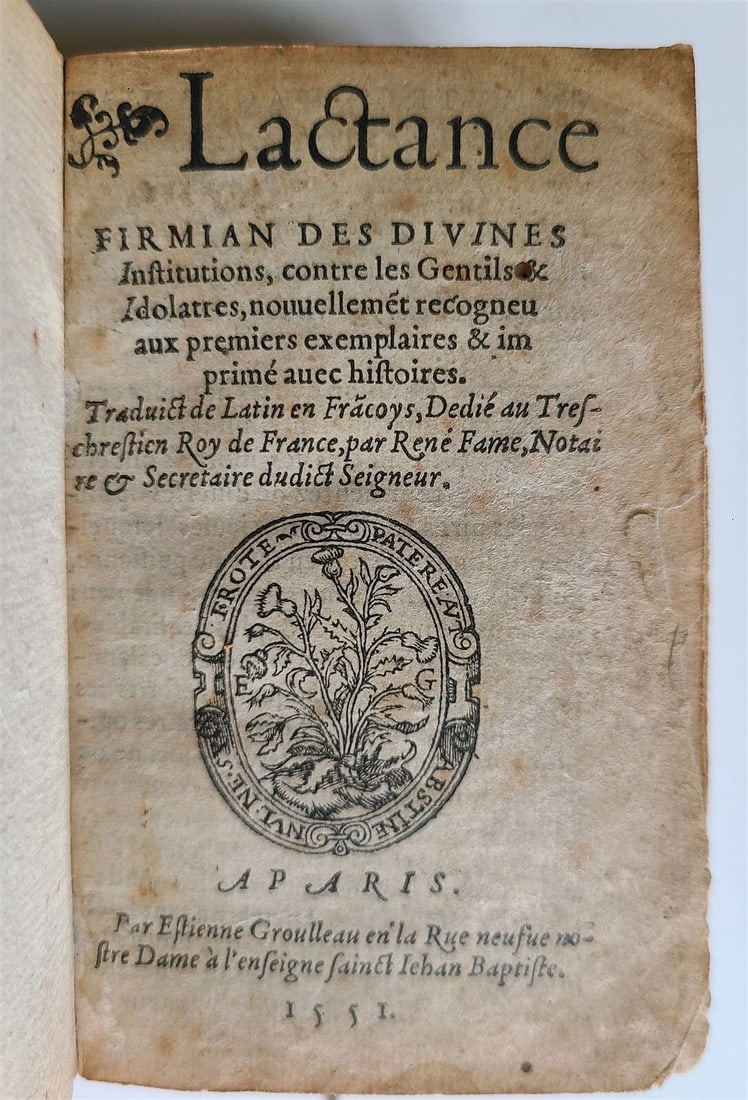 Lactance
FIRMIAN DES DIVINES
Inſtitutions, contre les Gentils &
Idolatres, nouuellemẽt recogneu
aux premiers exemplaires & im
primé auec hiſtoires.
Traduict de Latin en Frãcoys, Dedié au Treſ-
chreſtien Roy de France, par René Fame, Notai
re & Secretaire dudict Seigneur.
PATERE AVT
ABSTINE
NVL NE S'Y
FROTE
E G
A PARIS.
Par Eſtienne Groulleau en la Rue neufue no-
ſtre Dame à l'enſeigne ſainct Iehan Baptiſte.
1551.